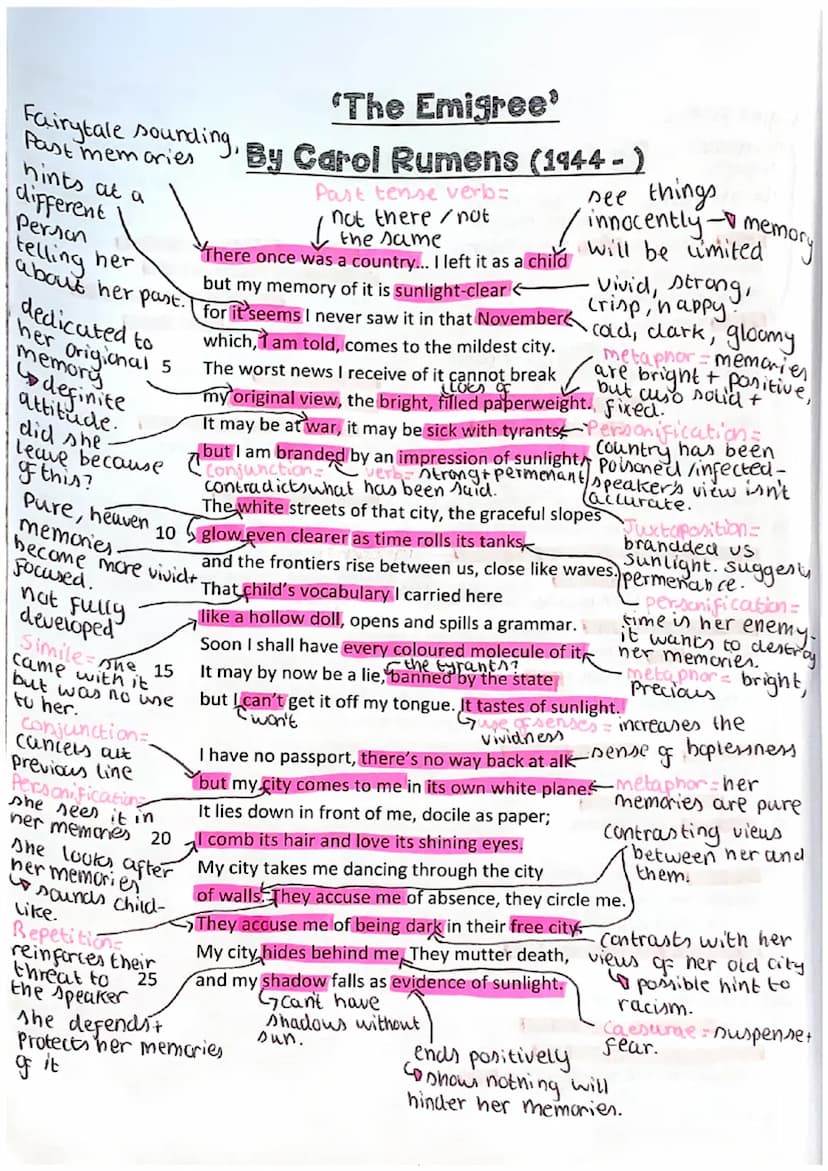 ‘The Emigree’
By Carol Rumens (1944 - )
Fairytale sounding,
Past memories
hints at a
different
person
telling her
about her past.
dedicated to
her origional
memory
↳ definite
attitude.
did she
leave because
of this?
Pure, heaven
memories
become more vivid +
focused.
not fully
developed
Simile = she
came with it
but was no use
to her.
Conjunction =
cancels out
previous line
Personification =
she sees it in
her memories
she looks after
her memories
↳ sounds child-
like.
Repetition =
reinforces their
threat to
the speaker
she defends +
protects her memories
of it
Past tense verb =
not there / not
the same
There once was a country... I left it as a child
but my memory of it is sunlight-clear
for it seems I never saw it in that November
which, I am told, comes to the mildest city.
5 The worst news I receive of it cannot break
looks of
my original view, the bright, filled paperweight.
It may be at war, it may be sick with tyrants,
but I am branded by an impression of sunlight.
conjunction =
contradicts what has been said.
verb = strong + permenant
The white streets of that city, the graceful slopes
10 glow even clearer as time rolls its tanks
and the frontiers rise between us, close like waves.
That child’s vocabulary I carried here
like a hollow doll, opens and spills a grammar.
Soon I shall have every coloured molecule of it.
the tyrants?
15 It may by now be a lie, banned by the state
but I can’t get it off my tongue. It tastes of sunlight.
won't
use of senses = increases the
vividness
I have no passport, there’s no way back at all
but my city comes to me in its own white plane.
It lies down in front of me, docile as paper;
20 I comb its hair and love its shining eyes.
My city takes me dancing through the city
of walls. They accuse me of absence, they circle me.
They accuse me of being dark in their free city.
My city hides behind me. They mutter death,
25 and my shadow falls as evidence of sunlight.
↳ can't have
shadows without
sun.
ends positively
↳ shows nothing will
hinder her memories.
see things
innocently → memory
will be limited
vivid, strong,
crisp, happy.
cold, dark, gloomy
metaphor = memories
are bright + positive,
but also solid +
fixed.
Personification =
country has been
poisoned / infected -
speaker's view isn't
accurate.
Juxtaposition =
brandded us
sunlight. suggests
permenance.
personification =
time is her enemy -
it wants to destroy
her memories.
metaphor = bright,
precious
sense of hoplessness
metaphor = her
memories are pure
contrasting views
between her and
them.
contrasts with her
views of her old city
↳ possible hint to
racism.
Caesurae = suspense +
fear.